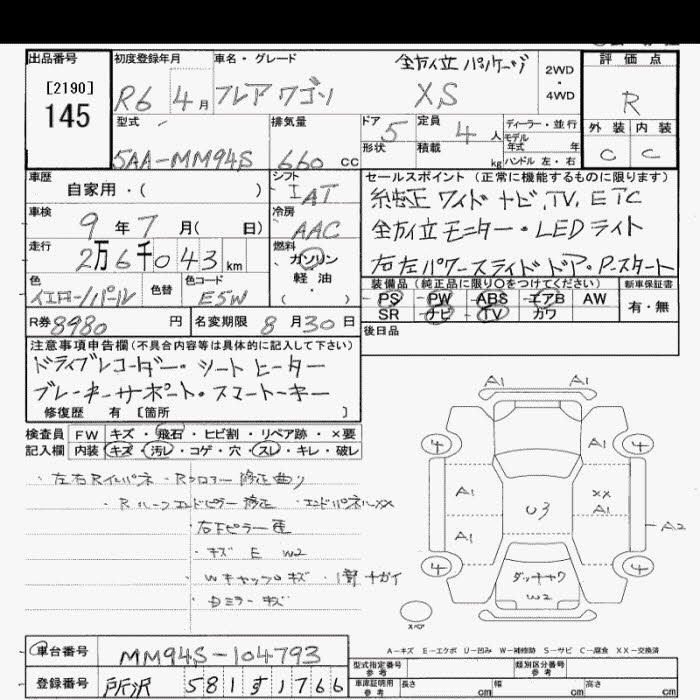 出品番号
[2190]
145
初度登録年月
R6 4月
車名・グレード
全方位パッケージ
フレアワゴン XS
2WD
・
4WD
評価点
R
外装 内装
C C
型式
5AA-MM94S
排気量
660 cc
ドア 5
定員 4 人
形状
積載 kg
ディーラー・並行
モデル
年式 年
ハンドル 左・右
車歴
自家用・( )
シフト
IAT
車検
9年7月( 日)
冷房
AAC
走行
2万6千043km
燃料
ガソリン
軽油
( )
色
イエローパール
色替
色コード
E5W
R券 8980 円
名変期限 8月30日
セールスポイント (正常に機能するものに限ります)
純正ワイドナビ.TV.ETC
全方位モニター・LEDライト
右左パワースライドドア・P.スタート
装備品(純正品に限り〇をつけてください)
PS PW ABS エアB AW
SR ナビ TV カワ
新車保証書
有・無
後日品
注意事項申告欄(不具合内容等は具体的に記入して下さい)
ドライブレコーダー・シートヒーター
ブレーキサポート・スマートキー
修復歴 有 [箇所 ]
検査員 FW キズ・飛石・ヒビ割・リペア跡・×要
記入欄 内装 キズ・汚レ・コゲ・穴・スレ・キレ・破レ
・左右Rインパネ ・Rフロアー修正曲り
・Rルーフエンドピラー修正 ・エンドパネルXX
・キズ E W2
・Wキャップキズ
ミラーキズ
A1 A1
4 A1 4
A1 XX
A1
U3
A1 A2
4 4
W2
スペア
A-キズ E-エクボ U-凹み W-補修跡 S-サビ C-腐食 XX-交換済
車台番号 MM94S-104793
登録番号 所沢 581 す 1766
型式指定番号
参考
類別区分番号
参考
車庫証明用
参考
長さ cm
幅 cm
高さ cm